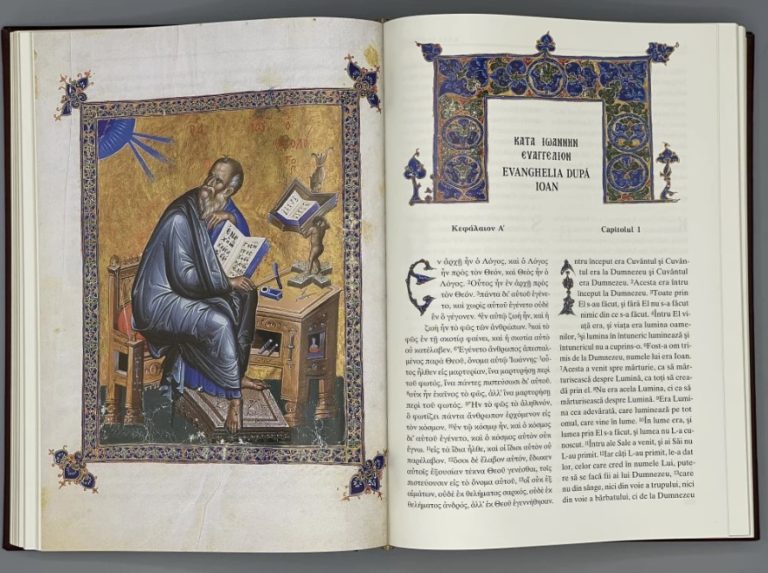 ΚΑΤΑ ΙΩΑΝΝΗΝ
ΕΥΑΓΓΕΛΙΟΝ
EVANGHELIA DUPĂ
IOAN
Κεφάλαιον Α'
Ἐν ἀρχῇ ἦν ὁ Λόγος, καὶ ὁ Λόγος
ἦν πρὸς τὸν Θεόν, καὶ Θεὸς ἦν ὁ
Λόγος. ²Οὗτος ἦν ἐν ἀρχῇ πρὸς
τὸν Θεόν. ³πάντα δι' αὐτοῦ ἐγένε-
το, καὶ χωρὶς αὐτοῦ ἐγένετο οὐδὲ
ἓν ὃ γέγονεν. ⁴ἐν αὐτῷ ζωὴ ἦν, καὶ ἡ
ζωὴ ἦν τὸ φῶς τῶν ἀνθρώπων. ⁵καὶ τὸ
φῶς ἐν τῇ σκοτίᾳ φαίνει, καὶ ἡ σκοτία αὐτὸ
οὐ κατέλαβεν. ⁶Ἐγένετο ἄνθρωπος ἀπεσταλ-
μένος παρὰ Θεοῦ, ὄνομα αὐτῷ Ἰωάννης· ⁷οὗ-
τος ἦλθεν εἰς μαρτυρίαν, ἵνα μαρτυρήσῃ περὶ
τοῦ φωτός, ἵνα πάντες πιστεύσωσι δι' αὐτοῦ.
⁸οὐκ ἦν ἐκεῖνος τὸ φῶς, ἀλλ' ἵνα μαρτυρήσῃ
περὶ τοῦ φωτός. ⁹Ἦν τὸ φῶς τὸ ἀληθινόν,
ὃ φωτίζει πάντα ἄνθρωπον ἐρχόμενον εἰς
τὸν κόσμον. ¹⁰ἐν τῷ κόσμῳ ἦν, καὶ ὁ κόσμος
δι' αὐτοῦ ἐγένετο, καὶ ὁ κόσμος αὐτὸν οὐκ
ἔγνω. ¹¹εἰς τὰ ἴδια ἦλθε, καὶ οἱ ἴδιοι αὐτὸν οὐ
παρέλαβον. ¹²ὅσοι δὲ ἔλαβον αὐτόν, ἔδωκεν
αὐτοῖς ἐξουσίαν τέκνα Θεοῦ γενέσθαι, τοῖς
πιστεύουσιν εἰς τὸ ὄνομα αὐτοῦ, ¹³οἳ οὐκ ἐξ
αἱμάτων, οὐδὲ ἐκ θελήματος σαρκός, οὐδὲ ἐκ
θελήματος ἀνδρός, ἀλλ' ἐκ Θεοῦ ἐγεννήθησαν.
Capitolul 1
Întru început era Cuvântul și Cuvân-
tul era la Dumnezeu și Cuvântul
era Dumnezeu. ²Acesta era întru
început la Dumnezeu. ³Toate prin
El s-au făcut, și fără El nu s-a făcut
nimic din ce s-a făcut. ⁴Întru El
viață era, și viața era lumina oame-
nilor, ⁵și lumina în întuneric luminează și
întunericul nu a cuprins-o. ⁶Fost-a om trimis
de la Dumnezeu, numele lui era Ioan.
⁷Acesta a venit spre mărturie, ca să măr-
turisească despre Lumină, ca toți să creadă
prin el. ⁸Nu era acela Lumina, ci ca să
mărturisească despre Lumină. ⁹Era Lumi-
na cea adevărată, care luminează pe tot
omul, care vine în lume. ¹⁰În lume era, și
lumea prin El s-a făcut, și lumea nu L-a cu-
noscut. ¹¹Întru ale Sale a venit, și ai Săi nu
L-au primit. ¹²Iar câți L-au primit, le-a dat
lor, celor care cred în numele Lui, pute-
re să se facă fii ai lui Dumnezeu, ¹³care
nu din sânge, nici din voie a trupului, nici
din voie a bărbatului, ci de la Dumnezeu